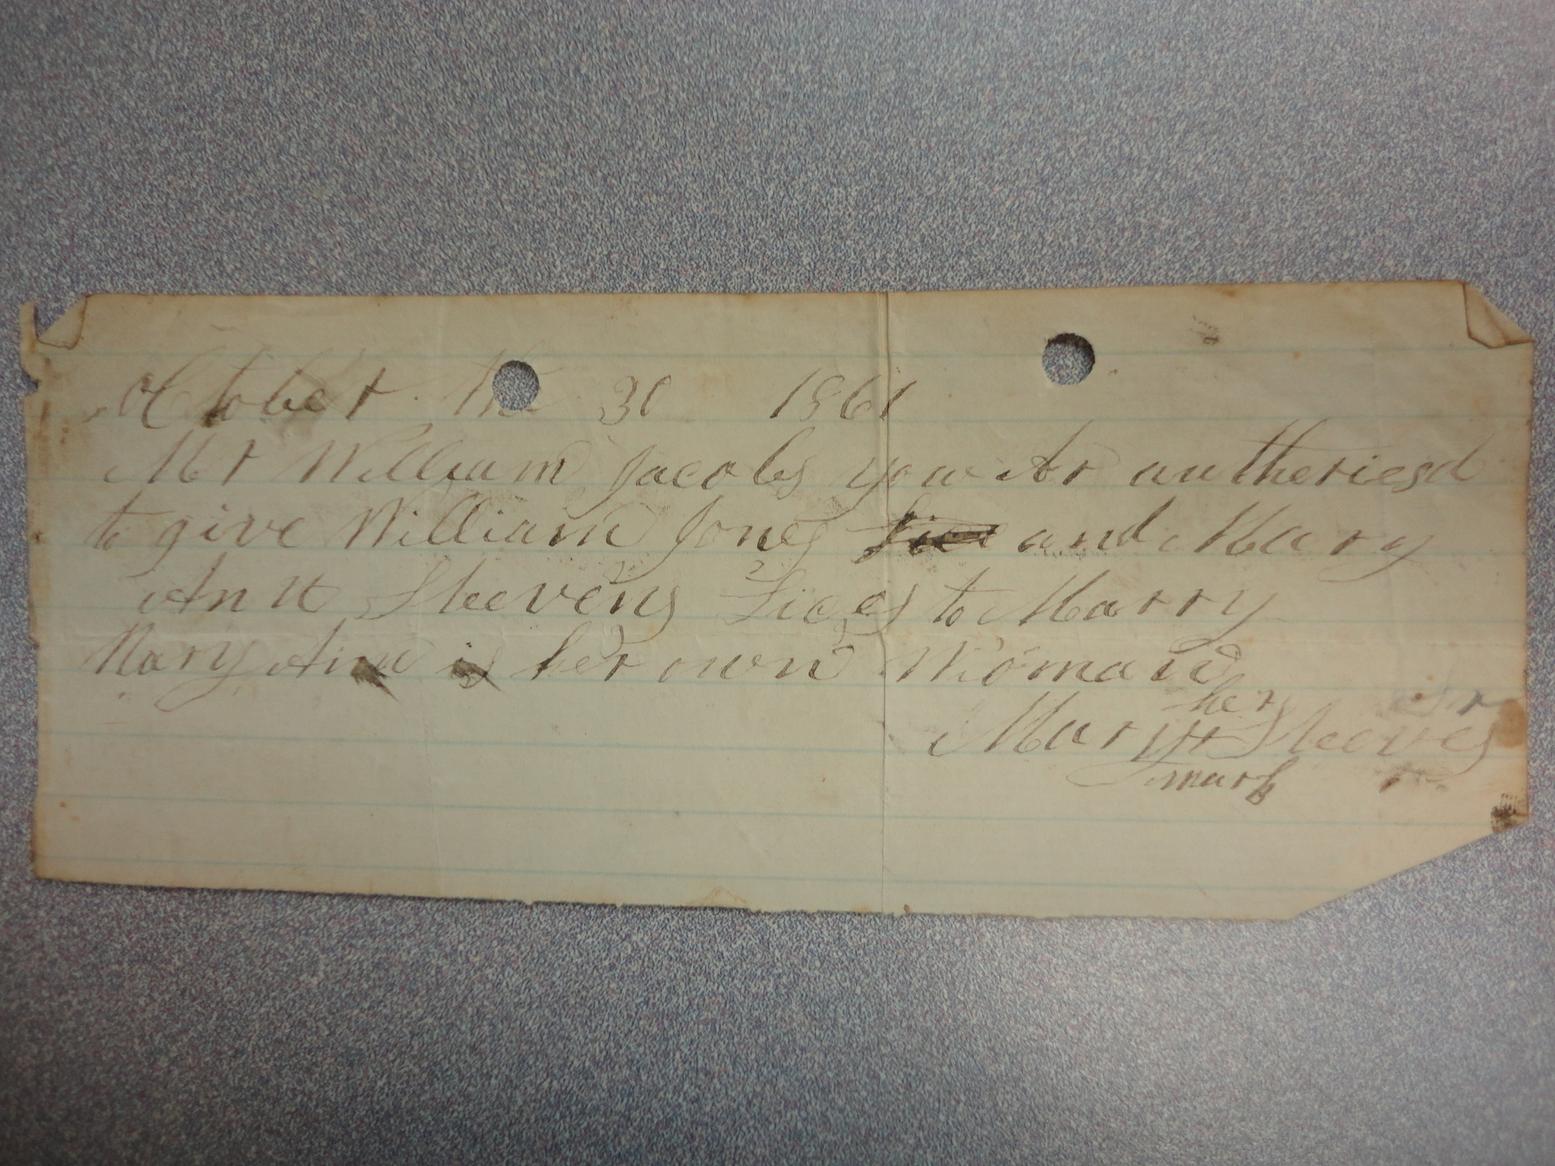 October the 30 1861
Mr William Jacobs you Ar autheriesd
to give William Jones and Mary
Ann Steevens Lices to Marry
Mary Ann is her own Woman
her
Mary Steeves
mark